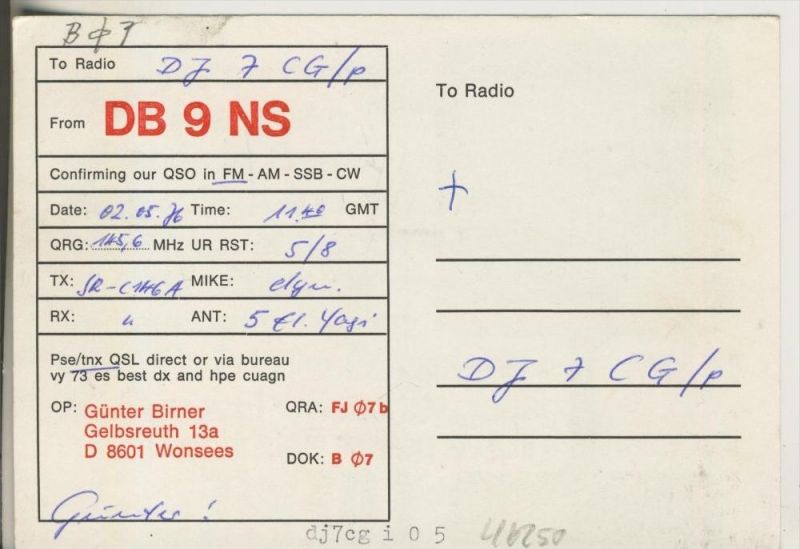 BØT
To Radio DJ 7 CG/p
From DB 9 NS
Confirming our QSO in FM - AM - SSB - CW
Date: 02.05.76 Time: 11.40 GMT
QRG: 145,6 MHz UR RST: 5/8
TX: SR-C146A MIKE: dyn.
RX: " ANT: 5 El. Yagi
Pse/tnx QSL direct or via bureau
vy 73 es best dx and hpe cuagn
OP: Günter Birner
Gelbsreuth 13a
D 8601 Wonsees
QRA: FJ Ø7 b
DOK: B Ø7
Günter!
To Radio
DJ 7 CG/p
dj7cg i 0 5